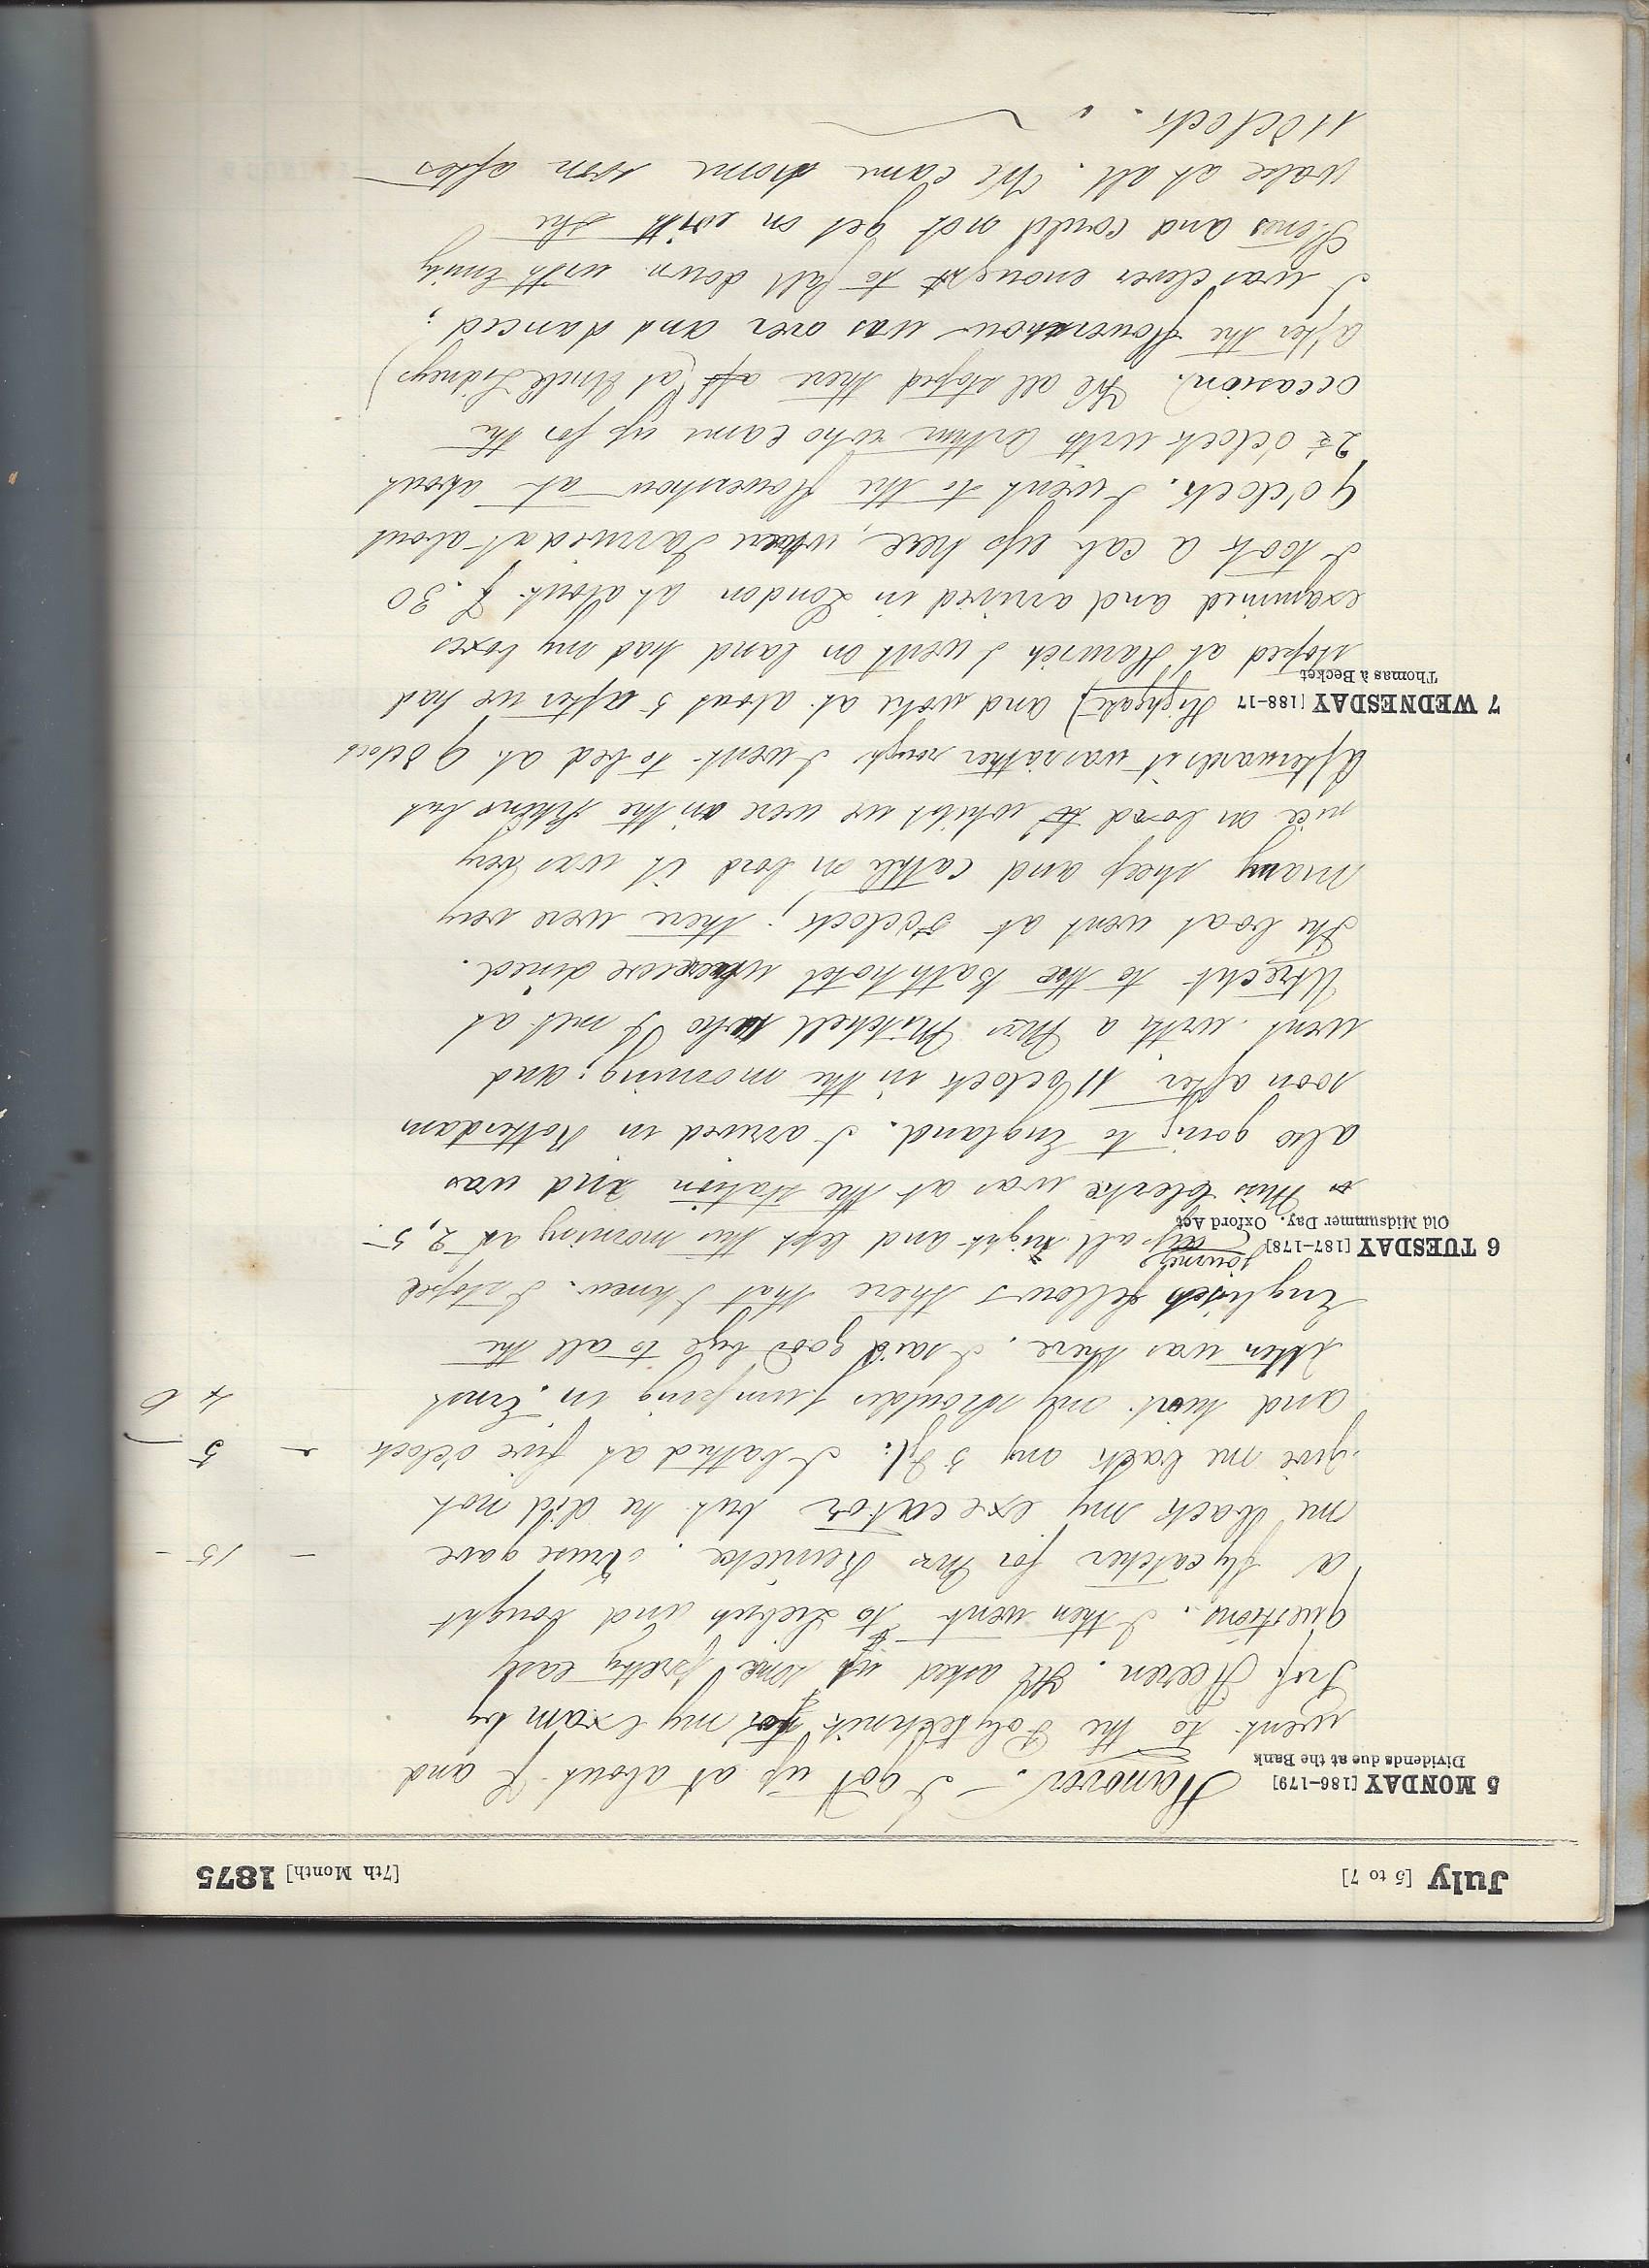 July [5 to 7] [7th Month] 1875
5 MONDAY [186-179] Hanover. - I got up at about 7 and
Dividends due at the Bank
went to the Polytechnik for my exam by
Prof Heeren. He asked up some pretty easy
questions. I then went to Liebsch and bought
a flycatcher for Mrs Renicke. Kruse gave - 15 -
me back my execator but he did not
give me back my 5 gl: I bathed at five oclock - 5
and hurt my shoulder jumping in. Ernst 4 6
was there. I said good bye to all the
Englisch fellows there that I knew. I stoped
6 TUESDAY [187-178] journey up all night and left this morning at 2,5.
Old Midsummer Day. Oxford Act
Miss Clerke was at the station and was
also going to England. I arrived in Rotterdam
soon after 11 oclock in the morning; and
went with a Mrs Mitchell who I met at
Utrecht to the Bath hotel where we dined.
The boat went at 5 oclock; there were very
many sheep and cattle on bord it was very
nice on board whilst we were in the Rhine but
afterwards it was rather rough I went to bed at 9 oclock
7 WEDNESDAY [188-17 Highgate) and woke at about 5 after we had
Thomas à Becket
stoped at Harwich I went on land had my boxes
examined and arrived in London at about 7.30
I took a cab up here, where I arrived at about
9 o'clock. I went to the flowershow at about
2½ oclock with Arthur who came up for the
occasion. We all stoped there aft (at Uncle Sidneys)
after the flowershow was over and danced;
I was clever enought to fall down with Emily
and could not get on with the
valse at all. We came home soon after
11 oclock.